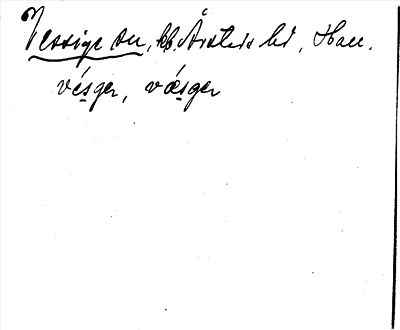 Vessige sn, Årstads hd, Hall.
vésger, væsger